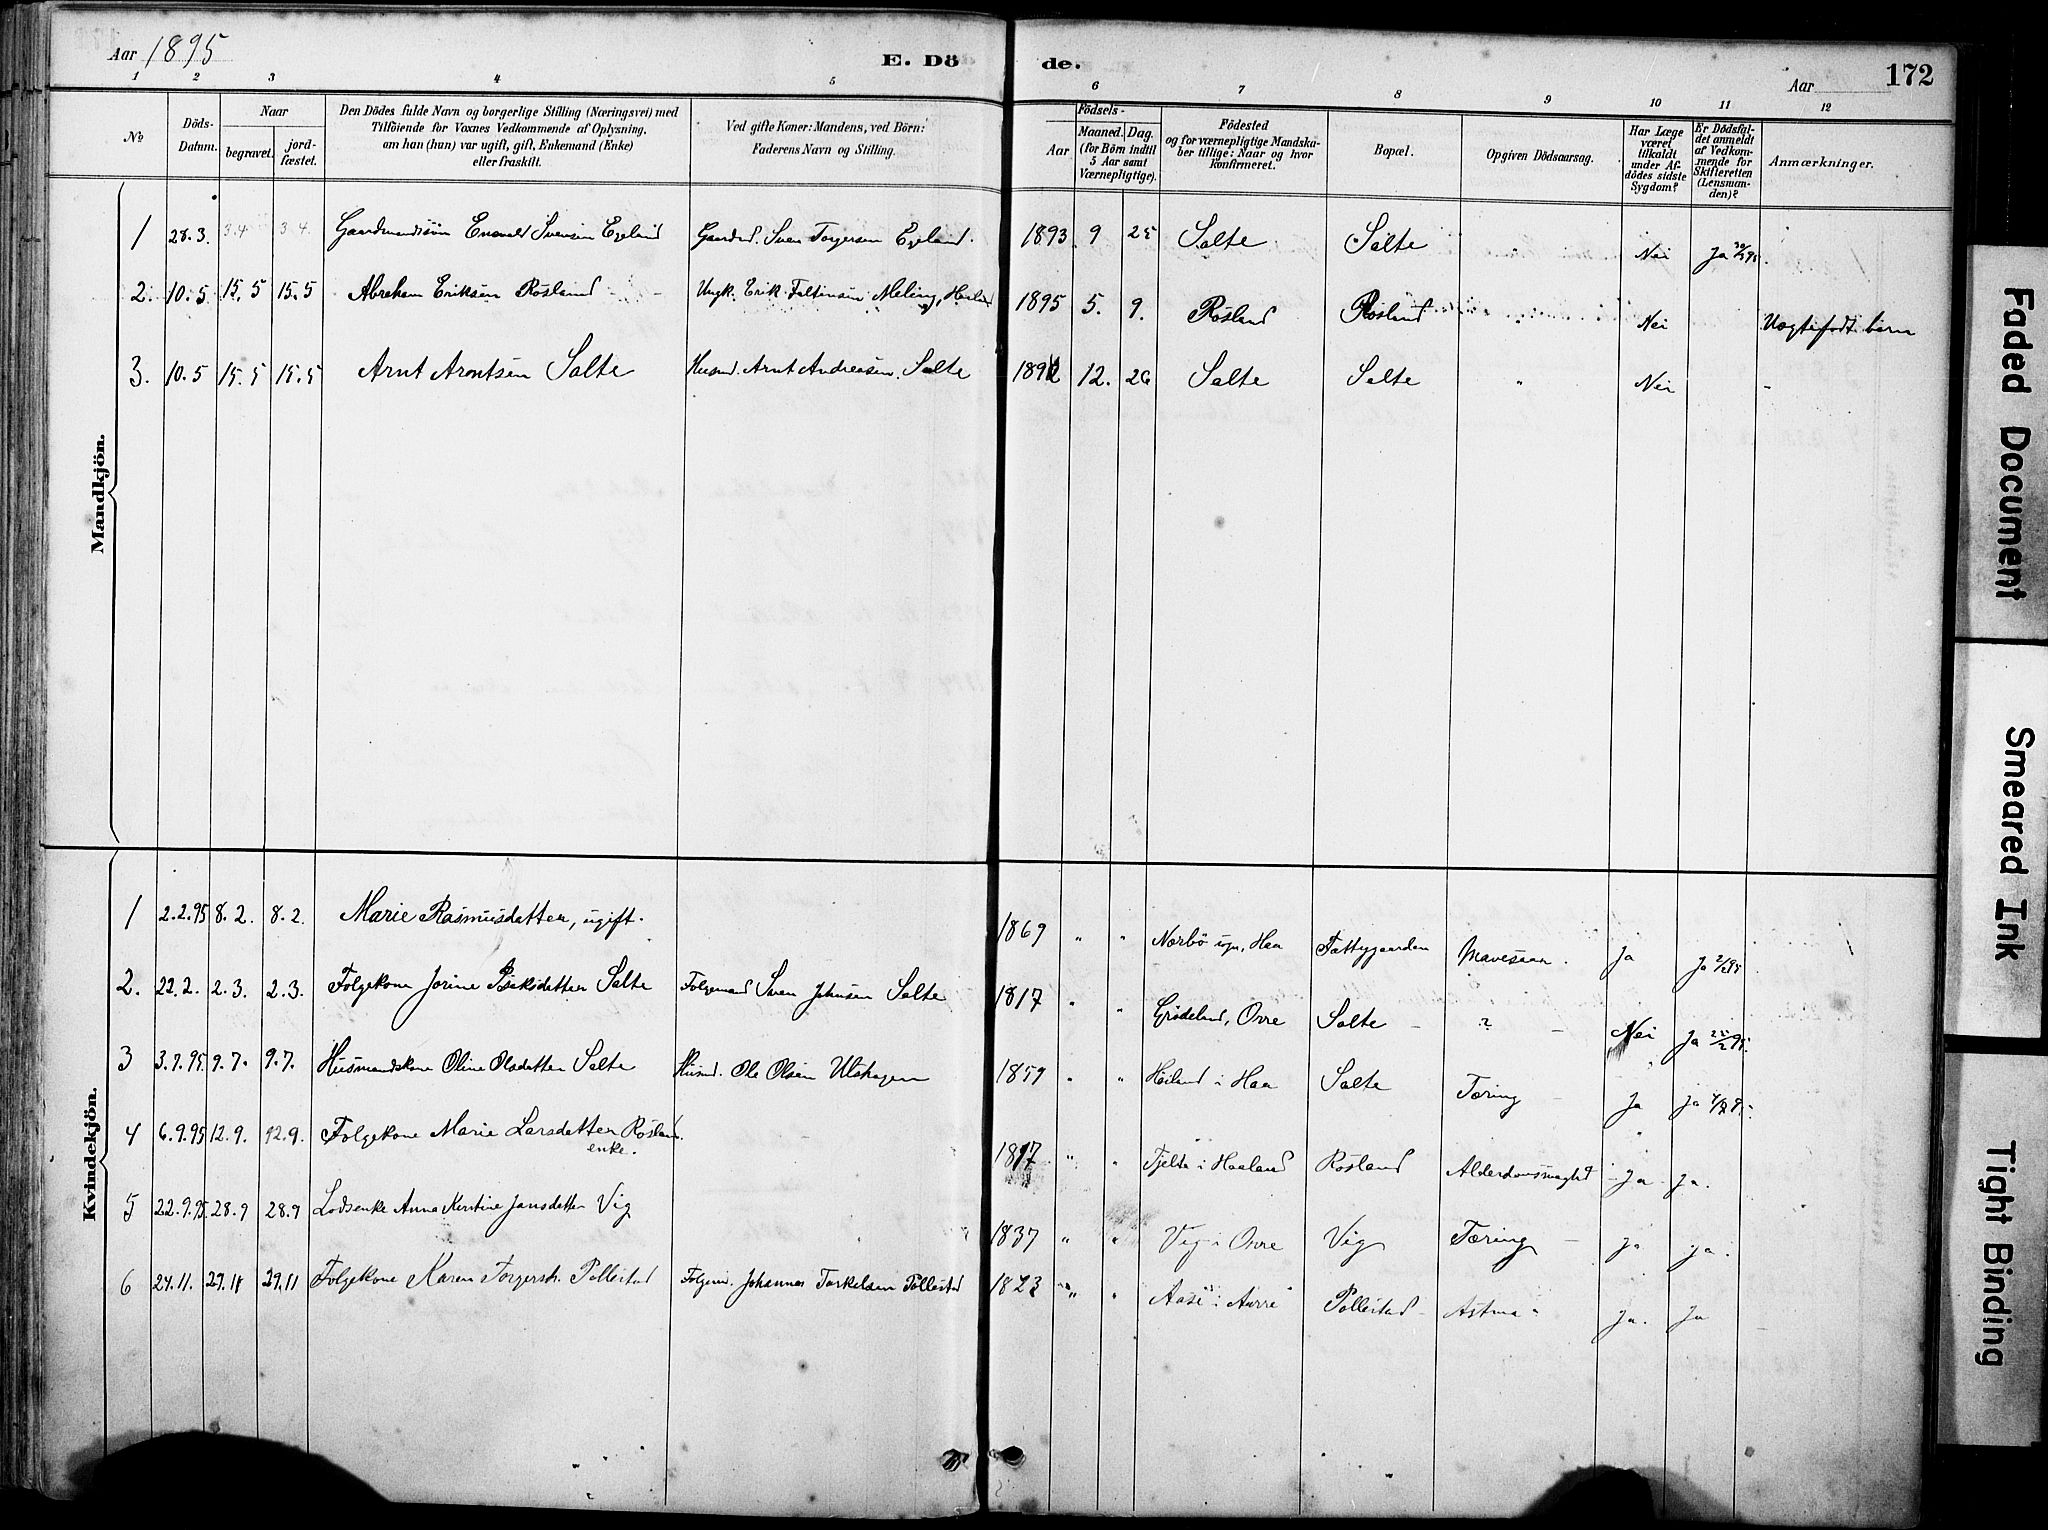 Aar 1895
E. Dö de.
Aar 172
1 2 3 3 4 5 6 7 8 9 10 11 12
No
Döds-Datum.
Naar
begravet.
jord-fæstet.
Den Dödes fulde Navn og borgerlige Stilling (Næringsvei) med
Tilföiende for Voxnes Vedkommende af Oplysning,
om han (hun) var ugift, gift, Enkemand (Enke)
eller fraskilt.
Ved gifte Koner: Mandens, ved Börn:
Faderens Navn og Stilling.
Födsels-
Aar
Maaned. Dag.
(for Börn indtil
5 Aar samt
Værnepligtige).
Födested
og for værnepligtige Mandska-
ber tillige: Naar og hvor
konfirmeret.
Bopæl.
Opgiven Dödsaarsag.
Har Læge
været
tilkaldt
under Af-
dödes sidste
Sygdom?
Er Dödsfal-
det anmeldt
af Vedkom-
mende for
Skifteretten
(Lensman-
den)?
Anmærkninger.
Mandkjön.
1 28.3. 3.4 3.4. Gaardmandssön Enevald Svensen Egeland Gaardmd. Sven Torgersen Egeland. 1893 9 25 Salte Salte Nei Ja
2. 10.5. 15.5 15.5 Abraham Eriksen Rosland Ungk. Erik Faltinsen Meling, 1895 5. 9. Rosland Rosland " Nei Uægtefødt barn
3. 10.5 15.5 15.5 Arnt Arntsen Salte Husmd. Arnt Andreasen Salte 1892 12. 26 Salte Salte " Nei -
Kvindekjön.
1 2.2.95 8.2. 8.2. Marie Rasmusdatter, ugift. 1869 " " Nærbö sgn, Haa Fattiggaarden Mavesaar. Ja Ja 2/2 95
2. 22.2. 2.3. 2.3. Folgekone Jorine Salte Folgemand Sven Johnsen Salte 1817 " " Grödeland, Orre Salte - ? - Nei Ja 25/2 95.
3 3.7.95. 9.7. 9.7. Husmandskone Oline Olsdatter Salte Husmd. Ole Olsen Ulshagen 1859 " " Höiland i Haa Salte Tæring - Ja Ja
4 6.9.95 12.9. 12.9. Folgekone Marie Larsdatter Rosland.
enke.
1817 " " Tjelta i Haaland Rosland Alderdomssvaghed Ja Ja.
5 22.9.95. 28.9 28.9 Lodsenke Anna Kerstine Jansdatter Vig 1837 " " Vig i Orre Vig Tæring - Ja Ja.
6 24.11. 29.11 29.11 Folgekone Karen Torgersd. Pollestad Folgemd. Johannes Torkelsen Pollestad 1823 " " Aase i Aurre Pollestad Astma Ja. Ja
Faded Document
Smeared Ink
Tight Binding